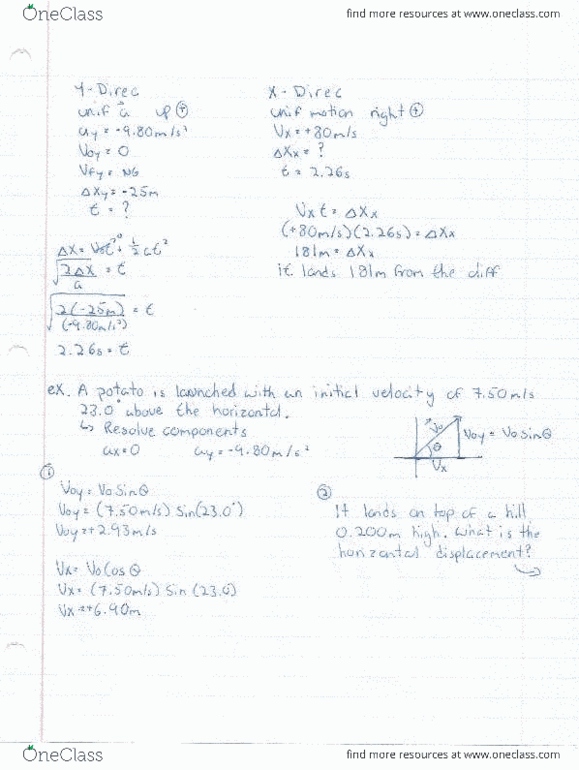 OneClass
find more resources at www.oneclass.com
Y-Direc
unif a⃗ up ⊕
ay = -9.80m/s²
Voy = 0
Vfy = NG
ΔXy = -25m
t = ?
ΔX = Vot + ½at²
√(2ΔX/a) = t
√(2(-25m)/(-9.80m/s²)) = t
2.26s = t
X-Direc
unif motion right ⊕
Vx = +80m/s
ΔXx = ?
t = 2.26s
Vxt = ΔXx
(+80m/s)(2.26s) = ΔXx
181m = ΔXx
it lands 181m from the cliff
ex. A potato is launched with an initial velocity of 7.50m/s
23.0° above the horizontal.
↳ Resolve components
ax=0 ay = -9.80m/s²
Vo
θ
Vx
Voy = Vo Sinθ
①
Voy = Vo Sinθ
Voy = (7.50m/s) Sin(23.0°)
Voy = +2.93m/s
Vx = Vo Cos θ
Vx = (7.50m/s) Sin (23.0)
Vx = +6.90m
②
It lands on top of a hill
0.200m high. What is the
horizontal displacement?
OneClass
find more resources at www.oneclass.com